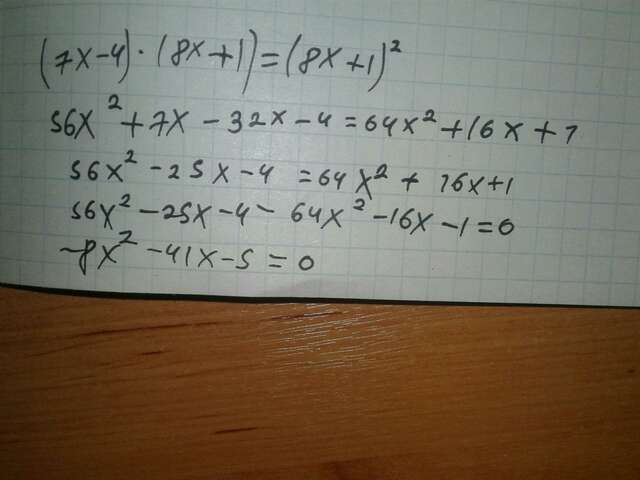 (7x-4)·(8x+1)=(8x+1)²
56x²+7x-32x-4=64x²+16x+1
56x²-25x-4=64x²+16x+1
56x²-25x-4-64x²-16x-1=0
-8x²-41x-5=0